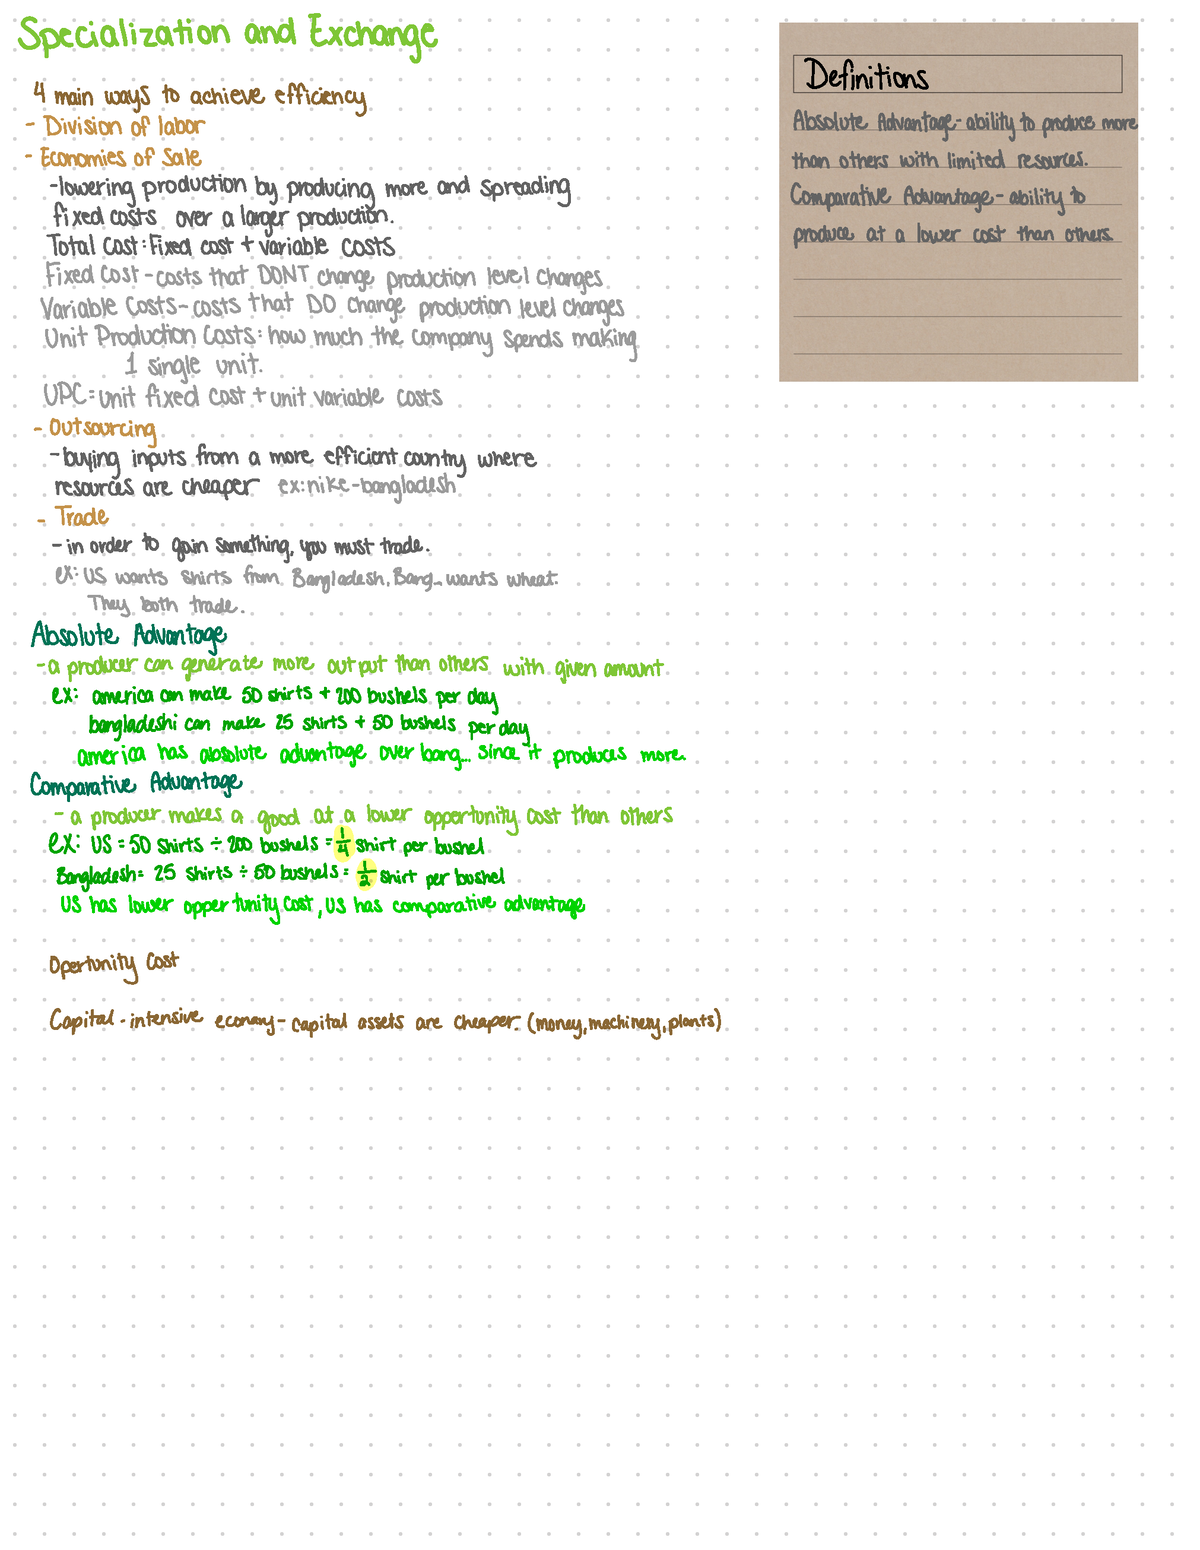 Specialization and Exchange
4 main ways to achieve efficiency
- Division of labor
- Economies of Sale
-lowering production by producing more and spreading
fixed costs over a larger production.
Total Cost: Fixed cost + variable costs
Fixed Cost - costs that DONT change production level changes
Variable Costs - costs that DO change production level changes
Unit Production Costs: how much the company spends making
1 single unit.
UPC = unit fixed cost + unit variable costs
- Outsourcing
- buying inputs from a more efficient country where
resources are cheaper ex: nike - bangladesh
- Trade
- in order to gain something, you must trade.
ex: US wants shirts from Bangladesh, Bang... wants wheat.
They both trade.
Absolute Advantage
- a producer can generate more output than others with given amount
ex: america can make 50 shirts + 200 bushels per day
bangladeshi can make 25 shirts + 50 bushels per day
america has absolute advantage over bang... since it produces more.
Comparative Advantage
- a producer makes a good at a lower opportunity cost than others
ex: US = 50 shirts ÷ 200 bushels = 1/4 shirt per bushel
Bangladesh = 25 shirts ÷ 50 bushels = 1/2 shirt per bushel
US has lower oppertunity cost, US has comparative advantage
Opertunity Cost
Capital - intensive economy - capital assets are cheaper. (money, machinery, plants)
Definitions
Absolute Advantage - ability to produce more
than others with limited resources.
Comparative Advantage - ability to
produce at a lower cost than others.